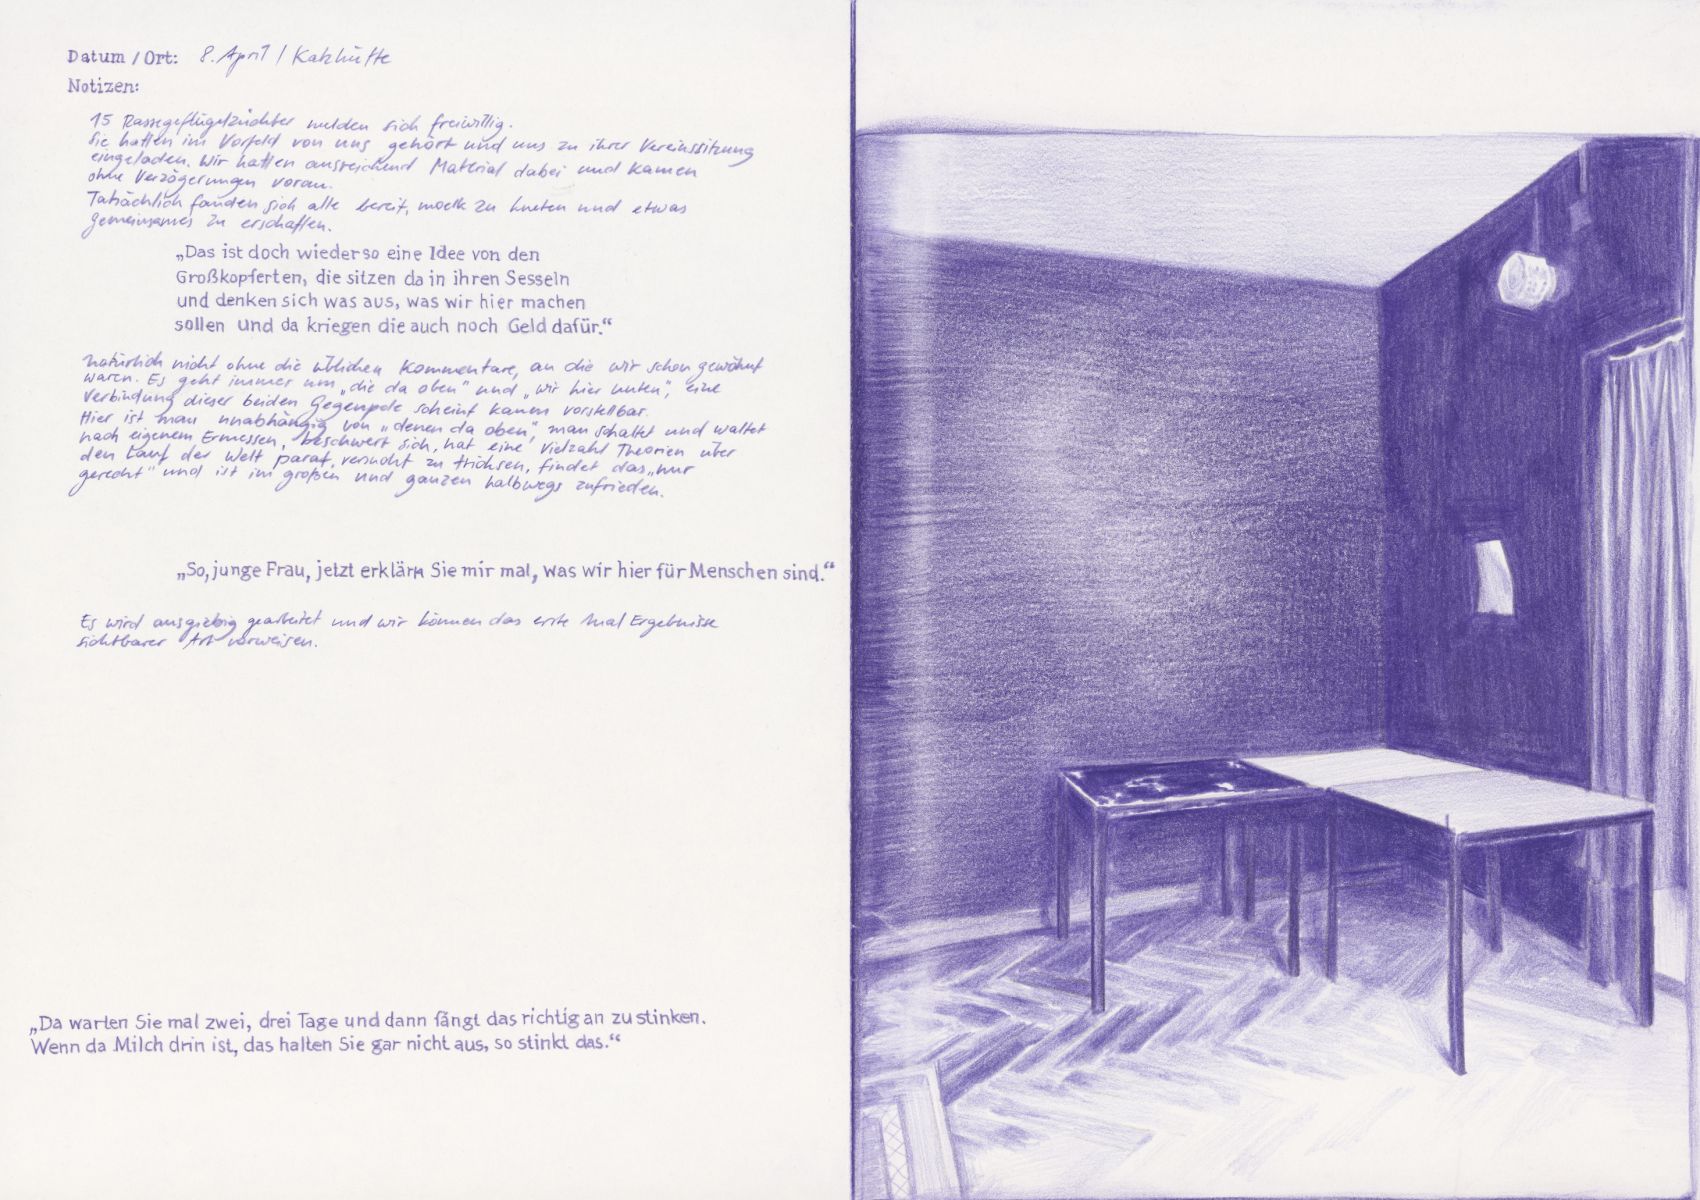 Datum / Ort: 8. April / Katzhütte
Notizen:
15 Rassegeflügelzüchter melden sich freiwillig.
Sie hatten im Vorfeld von uns gehört und uns zu ihrer Vereinssitzung
eingeladen. Wir hatten ausreichend Material dabei und kamen
ohne Verzögerungen voran.
Tatsächlich fanden sich alle bereit, zu kneten und etwas
gemeinsames zu erschaffen.
„Das ist doch wieder so eine Idee von den
Großkopferten, die sitzen da in ihren Sesseln
und denken sich was aus, was wir hier machen
sollen und da kriegen die auch noch Geld dafür.“
Natürlich nicht ohne die üblichen Kommentare, an die wir schon gewöhnt
waren. Es geht immer um „die da oben“ und „wir hier unten“, eine
Verbindung dieser beiden Gegenpole scheint kaum vorstellbar.
Hier ist man unabhängig von „denen da oben“, man schaltet und waltet
nach eigenem Ermessen, beschwert sich, hat eine Vielzahl Theorien über
den Lauf der Welt parat, versucht zu tricksen, findet das „nur
gerecht“ und ist im großen und ganzen halbwegs zufrieden.
„So, junge Frau, jetzt erklärn Sie mir mal, was wir hier für Menschen sind.“
Es wird ausgiebig gearbeitet und wir können das erste Mal Ergebnisse
sichtbarer Art vorweisen.
„Da warten Sie mal zwei, drei Tage und dann fängt das richtig an zu stinken.
Wenn da Milch drin ist, das halten Sie gar nicht aus, so stinkt das.“